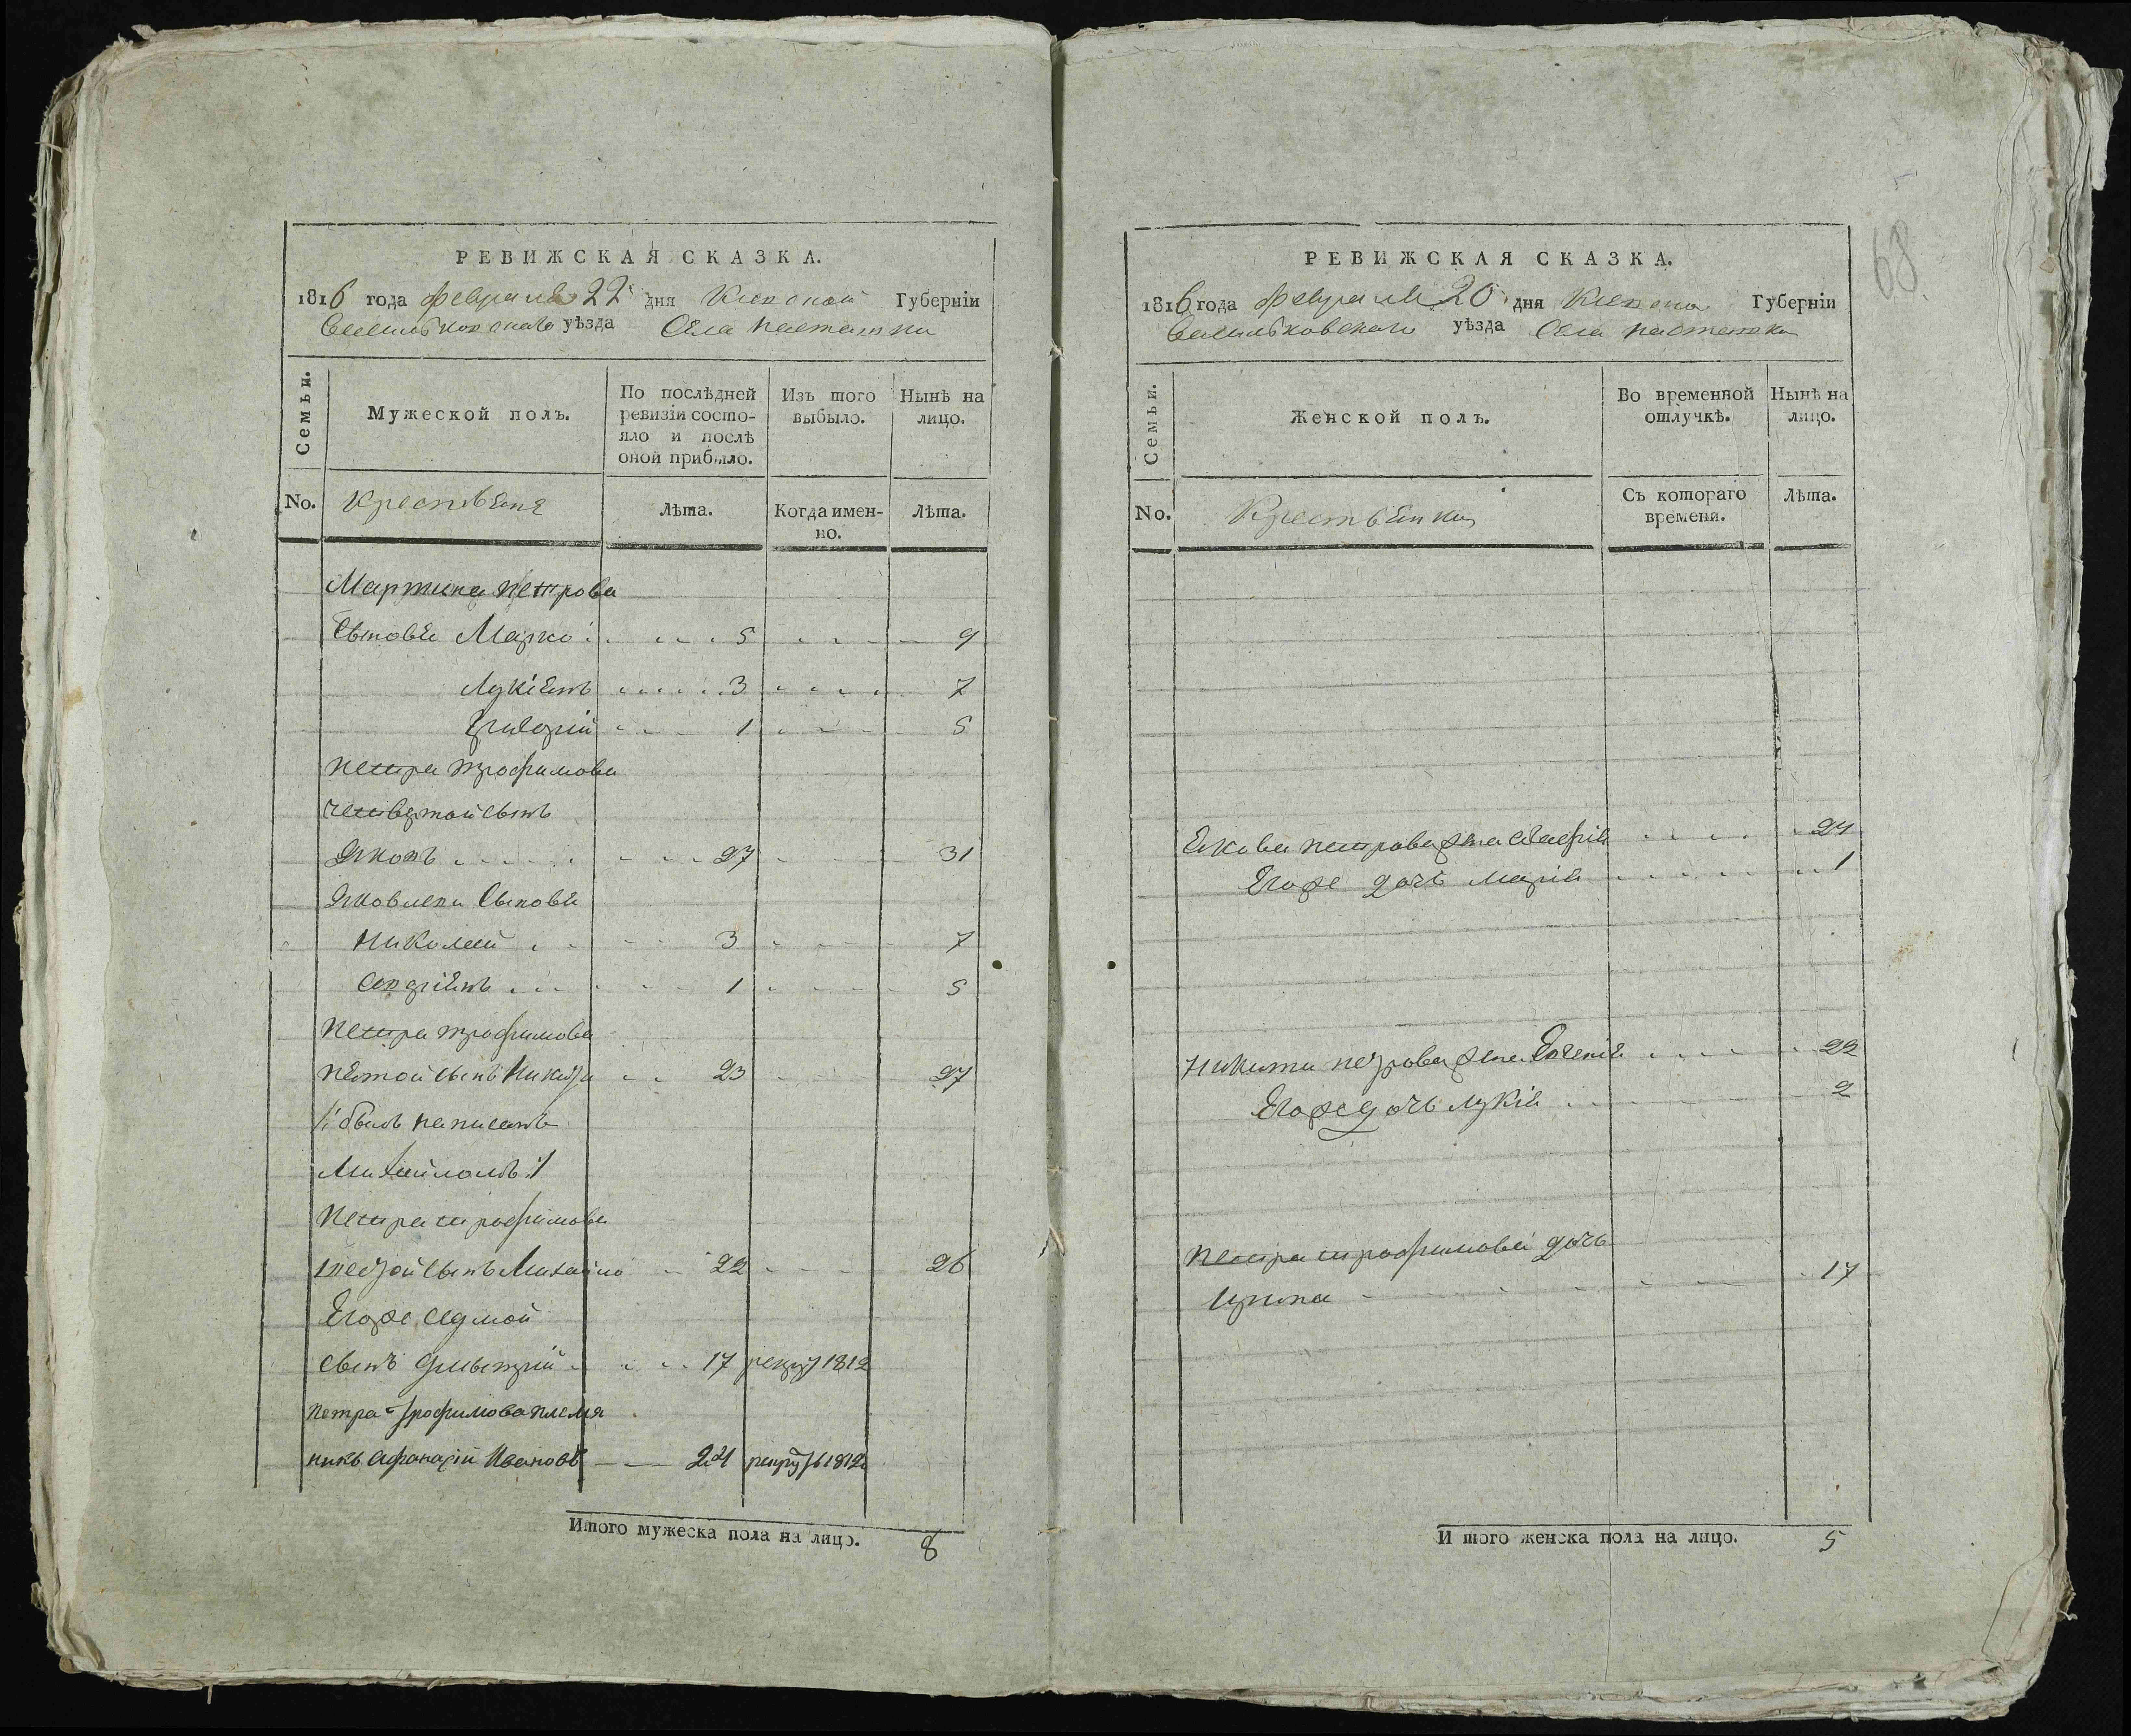 РЕВИЖСКАЯ СКАЗКА.
1816 года февраля 22 дня Киевской Губерніи
Васильковскаго уѣзда Села Пасташки
Семьи.
Мужеской полъ.
По послѣдней ревизіи состо-
яло и послѣ
оной прибыло.
Изъ того
выбыло.
Нынѣ на
лицо.
No.
Крестьяня
Лѣта.
Когда имен-
но.
Лѣта.
Мартина Петрова
Сыновья Марко 5 9
Лукіянъ 3 7
Григорій 1 5
Петра Трофимова
четвертой сынъ
Яковъ 27 31
Яковлевы Сыновья
Николай 3 7
Андріянъ 1 5
Петра Трофимова
пятой сынъ Никита 23 27
/: былъ написанъ
Михайломъ :/
Петра Трофимова
шестой сынъ Михайло 22 26
Егоже седмой
сынъ Дмытрій 17 рекрут 1812
Петра Трофимова племя
никъ Афанасій Ивановъ 24 рекрутъ 1812
Итого мужеска пола на лицо. 8
68
РЕВИЖСКАЯ СКАЗКА.
1816 года февраля 20 дня Киевской Губерніи
Васильковскаго уѣзда Села Пасташки
Семьи.
Женской полъ.
Во временной
отлучкѣ.
Нынѣ на
лицо.
No.
Крестьянки
Съ котораго
времени.
Лѣта.
Якова Петрова жена 24
Егоже дочь Марія 1
Никиты Петрова жена Евгенія 22
Егоже дочь Лукія 2
Петра Трофимова дочь
Ирина 17
Итого женска пола на лицо. 5